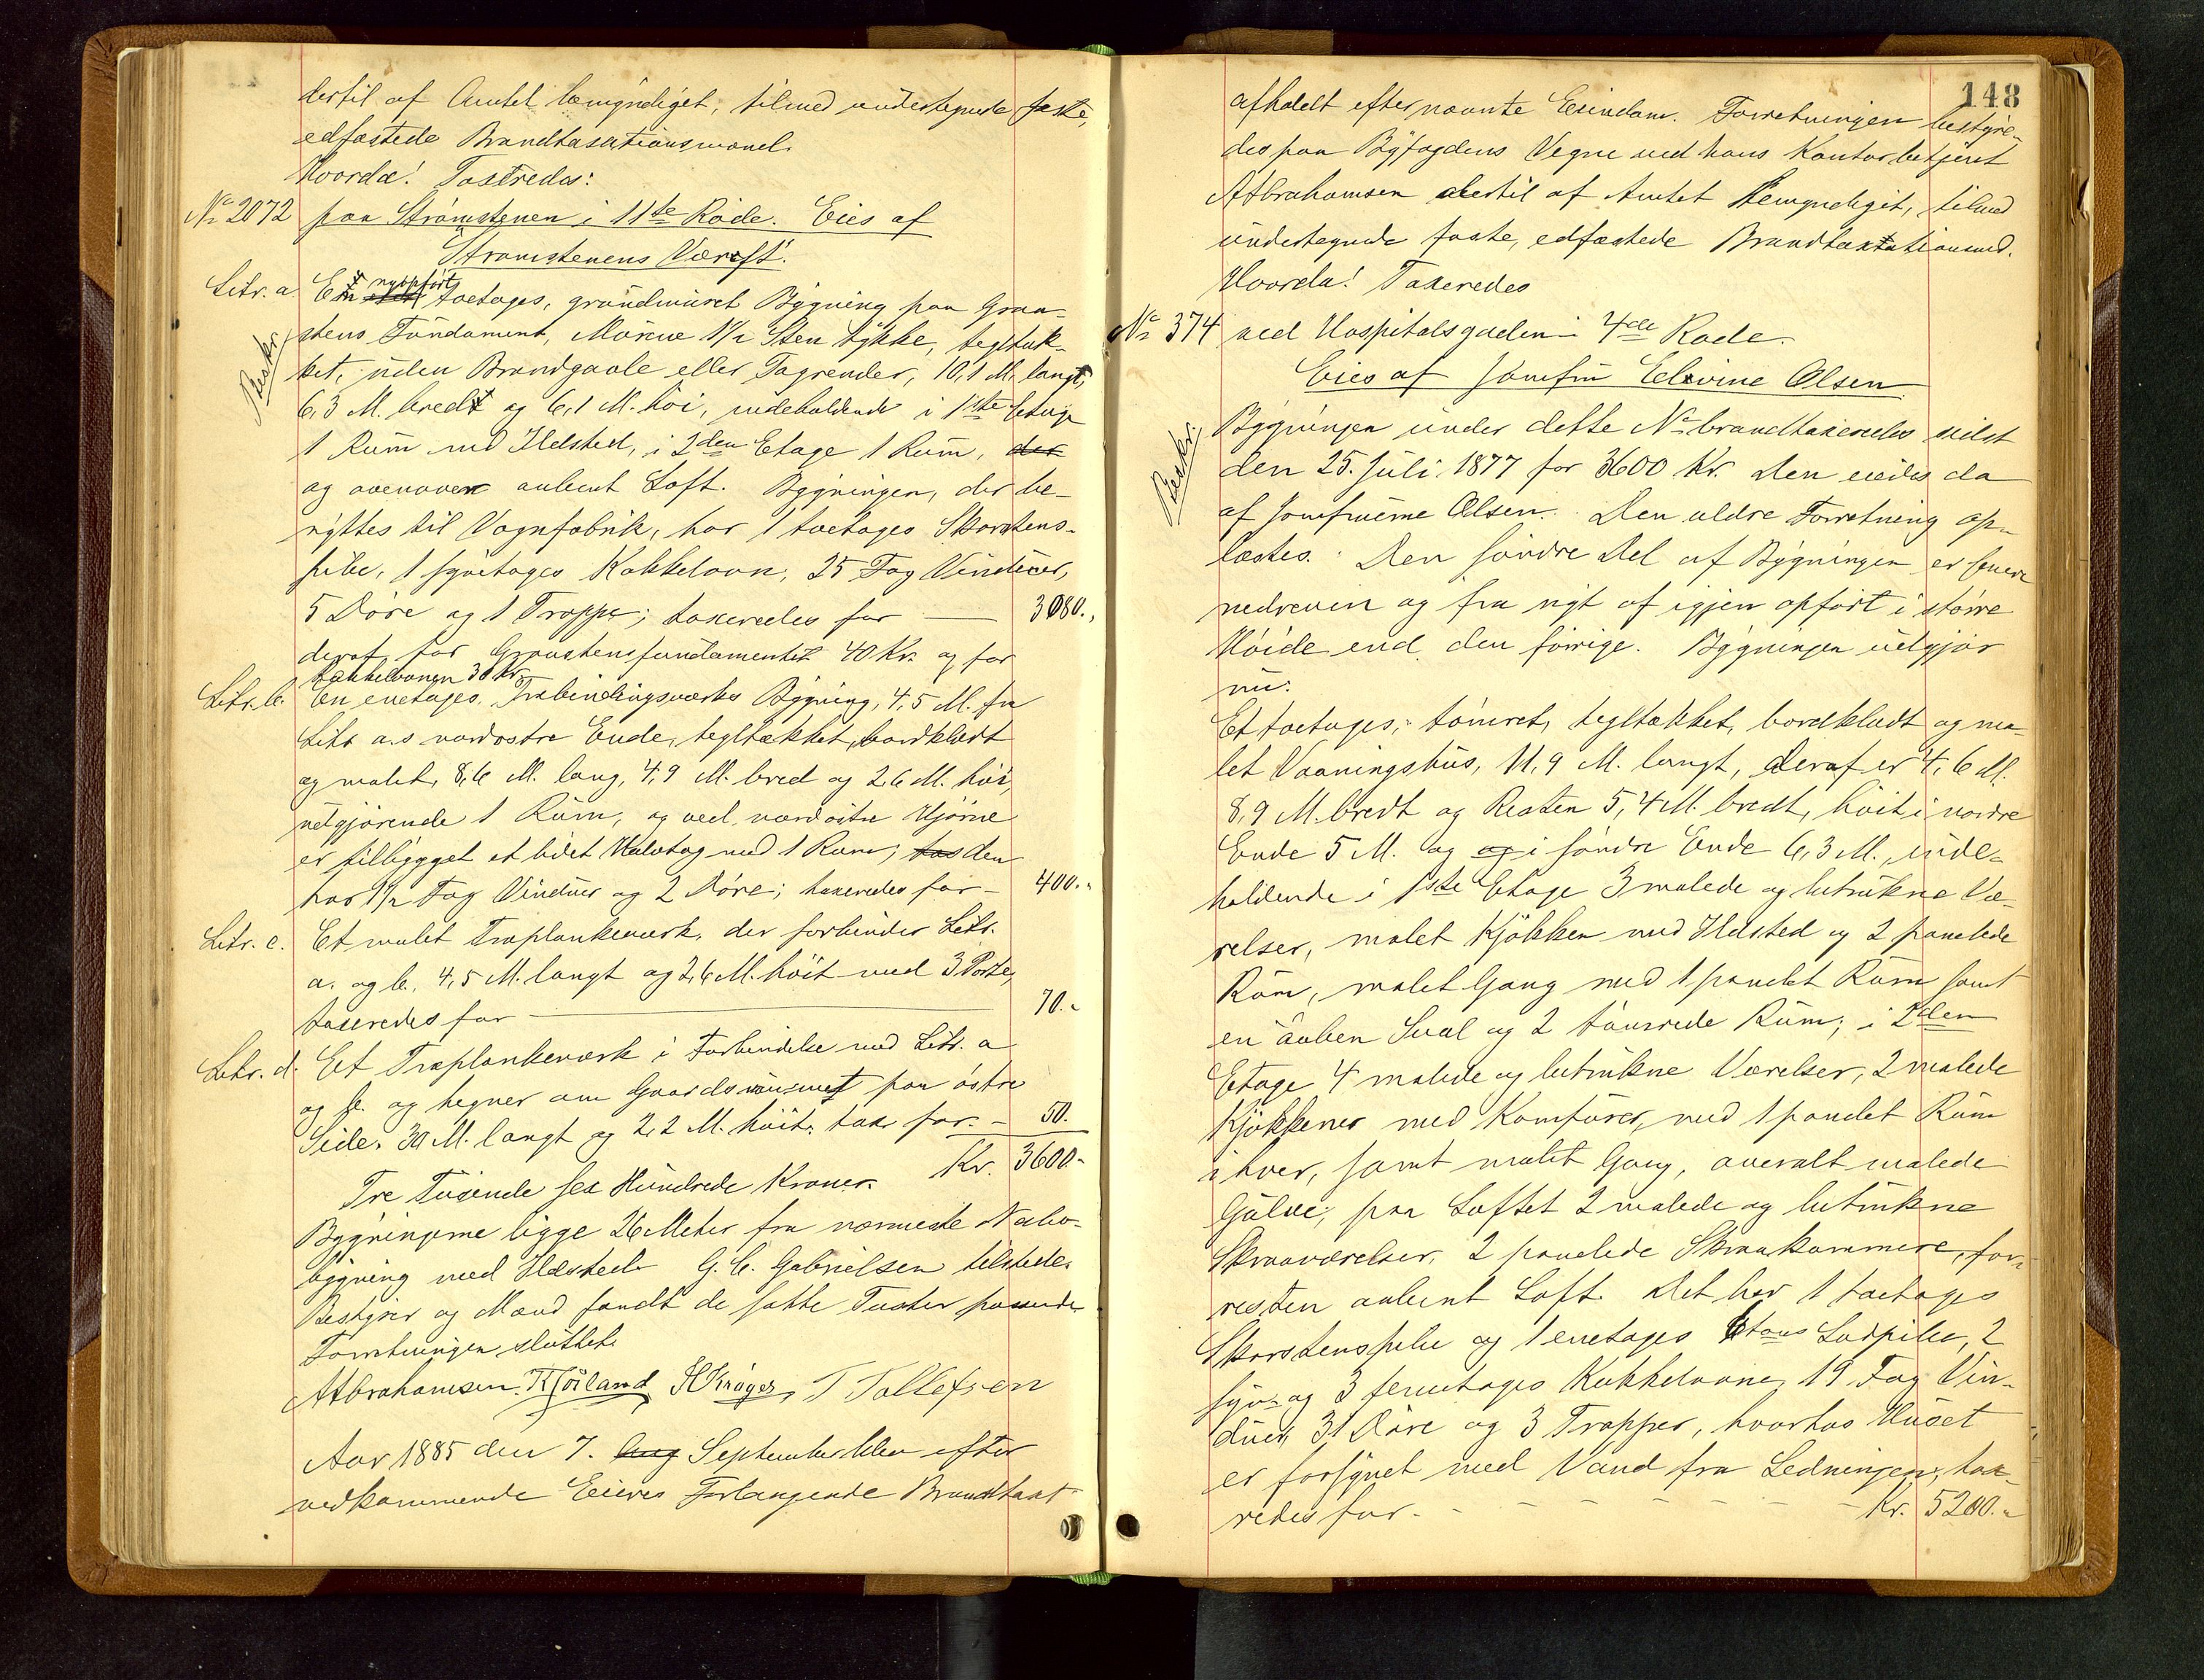 dertil af Amtet bemyndiget, tilmed undertegnede faste,
edfæstede Brandtaxationsmænd.
Hvorda! Taxeredes:
No 2072 paa Strømstenen i 11te Rode. Eies af
Strømstenens Værft.
Litr. a Et nyopført toetages, grundmuret Bygning paa Graa-
Beskr.
stens Fundament, Murene 1 1/2 Sten tykke, tegltæk-
ket, uden Brandgavle eller Tagrender, 10,1 M. langt,
6,3 M. bredt og 6,1 M. høi, indeholdende i 1ste Etage
1 Rum med Ildsted, i 2den Etage 1 Rum, der
og ovenover aabent Loft. Bygningen, der be-
nyttes til Vognfabrik, har 1 toetages Skorstens-
pibe, 1 fyretages Kakkelovn, 25 Fag Vinduer,
5 Døre og 1 Trappe; taxeredes for — 3080.,
deraf for Graastensfundamentet 40 Kr. og for
Kakkelovnen 30 Kr.
Litr. b. En enetages, Træbindingsværks Bygning, 4,5 M. fra
Litr a.s nordostre Ende, tegltækket, bordklædt
og malet, 8,6 M. lang, 4,9 M. bred og 2,6 M. høi,
udgjørende 1 Rum, og ved nordøstre Hjørne
er tilbygget et lidet Halvtag med 1 Rum; den
har 1 1/2 Fag Vinduer og 2 Døre; taxeredes for - 400.„
Litr. c. Et malet Træplankeværk, der forbinder Litr.
a. og b. 4,5 M. langt og 2,6 M. høit med 3 Porte,
taxeredes for — 70.„
Litr. d. Et Træplankeværk i Forbindelse med Litr. a
og b. og hegner om Gaardsrummet paa østre
Side. 30 M. langt og 2,2 M. høit, tax. for. - 50.
Kr. 3600.-
Tre Tusende sex Hundrede Kroner.
Bygningerne ligge 26 Meter fra nærmeste Nabo-
bygning med Ildsted. G. C. Gabrielsen tilstede.
Bestyrer og Mænd fandt de satte Taxter passende
Forretningen sluttet.
A Abrahamsen. T Høiland H Krøger, T Tollefsen
Aar 1885 den 7. Aug September blev efter
vedkommende Eieres Forlangende Brandtaxt
148
afholdt efternævnte Eiendom. Forretningen bestyre-
des paa Byfogdens Vegne ved hans Kontorbetjent
A Abrahamsen dertil af Amtet bemyndiget, tilmed
undertegnede faste, edfæstede Brandtaxtationsmd.
Hvorda! Taxeredes
No 374 ved Hospitalsgaden i 4de Rode.
Eies af Jomfru Elevine Olsen
Beskr.
Bygningen under dette No brandtaxeredes sidst
den 25. Juli 1877 for 3600 Kr. Den eiedes da
af Jomfruerne Olsen. Den ældre Forretning op-
læstes. Den søndre Del af Bygningen er senere
nedreven og fra nyt af igjen opført i større
Høide end den forrige. Bygningen udgjør
nu:
Et toetages, tømret, tegltækket, bordklædt og ma-
let Vaaningshus, 11,9 M. langt, deraf er 4,6 M.
8,9 M. bredt og Resten 5,4 M. bredt, høit i nordre
Ende 5 M. og og i søndre Ende 6,3 M., inde-
holdende i 1ste Etage 3 malede og betrukne Væ-
relser, malet Kjøkken med Ildsted og 2 panelede
Rum, malet Gang med 1 panelet Rum samt
en aaben Sval og 2 tømrede Rum; i 2den
Etage 4 malede og betrukne Værelser, 2 malede
Kjøkkener med Komfurer, med 1 panelet Rum
i hver, samt malet Gang, overalt malede
Gulve, paa Loftet 2 malede og betrukne
Skraaværelser, 2 panelede Skraakammere, for-
resten aabent Loft. Det har 1 toetages
Skorstenspibe og 1 enetages Ludpibe, 2
fyr- og 3 femetages Kakkelovne, 19 Fag Vin-
duer, 31 Døre og 3 Trapper, hvorhos Huset
er forsynet med Vand fra Ledningen, taxe-
redes for. - - - - - - Kr. 5200.„